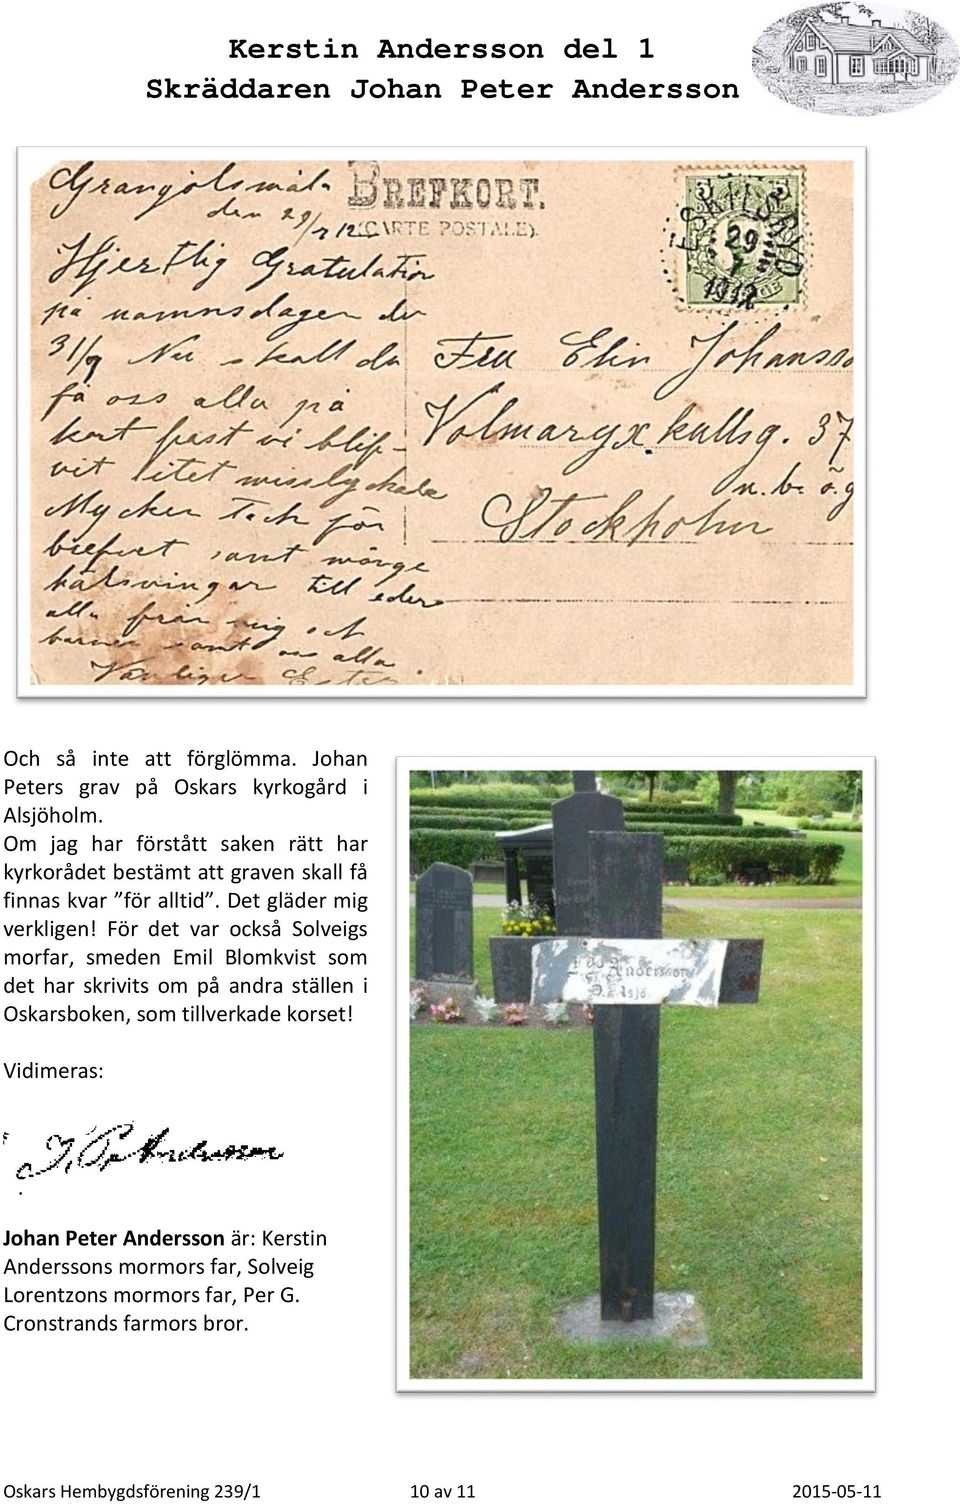 Kerstin Andersson del 1
Skräddaren Johan Peter Andersson
Grangölsmåla
den 29/7 12
BREFKORT.
(CARTE POSTALE).
ESKILSRYD
29
7
1912
Hjertlig Gratulation
på namnsdagen den
31/7 Nu skall du
få oss alla på
kort fast vi blif-
vit litet misslyckade
Mycket Tack för
brefvet samt många
hälsningar till eder
alla från mig och
barnen samt oss alla
Vänligen
Fru Elin Johansson
Volmaryxkullsg. 37
n.b. ö.g
Stockholm
Och så inte att förglömma. Johan
Peters grav på Oskars kyrkogård i
Alsjöholm.
Om jag har förstått saken rätt har
kyrkorådet bestämt att graven skall få
finnas kvar ”för alltid”. Det gläder mig
verkligen! För det var också Solveigs
morfar, smeden Emil Blomkvist som
det har skrivits om på andra ställen i
Oskarsboken, som tillverkade korset!
Vidimeras:
J. P. Andersson
Johan Peter Andersson är: Kerstin
Anderssons mormors far, Solveig
Lorentzons mormors far, Per G.
Cronstrands farmors bror.
Andersson
Oskars Hembygdsförening 239/1 10 av 11 2015-05-11